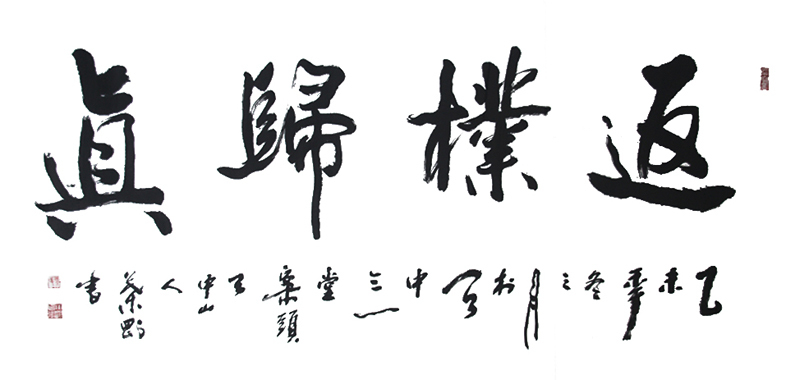 返樸歸真
乙未季冬之月於天中三一堂案頭了中山人葉鵬書